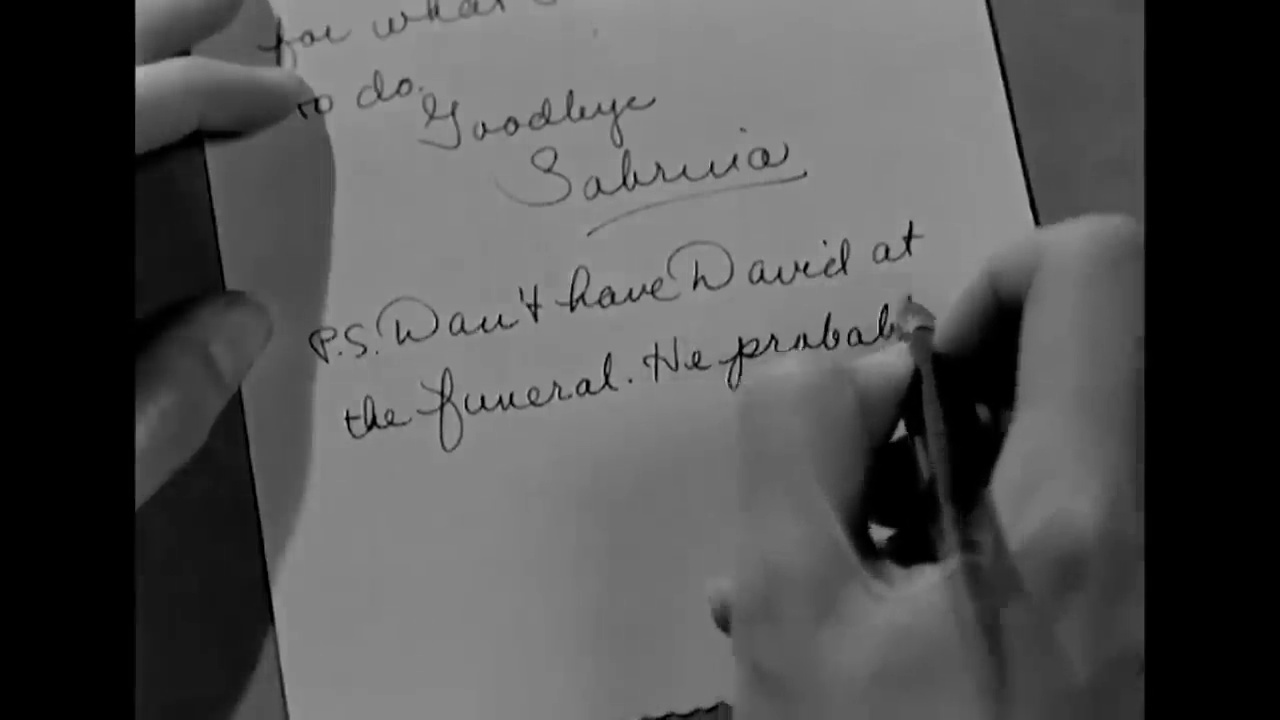 for what
to do.
Goodbye
Sabrina
P.S. Don't have David at
the funeral. He probab